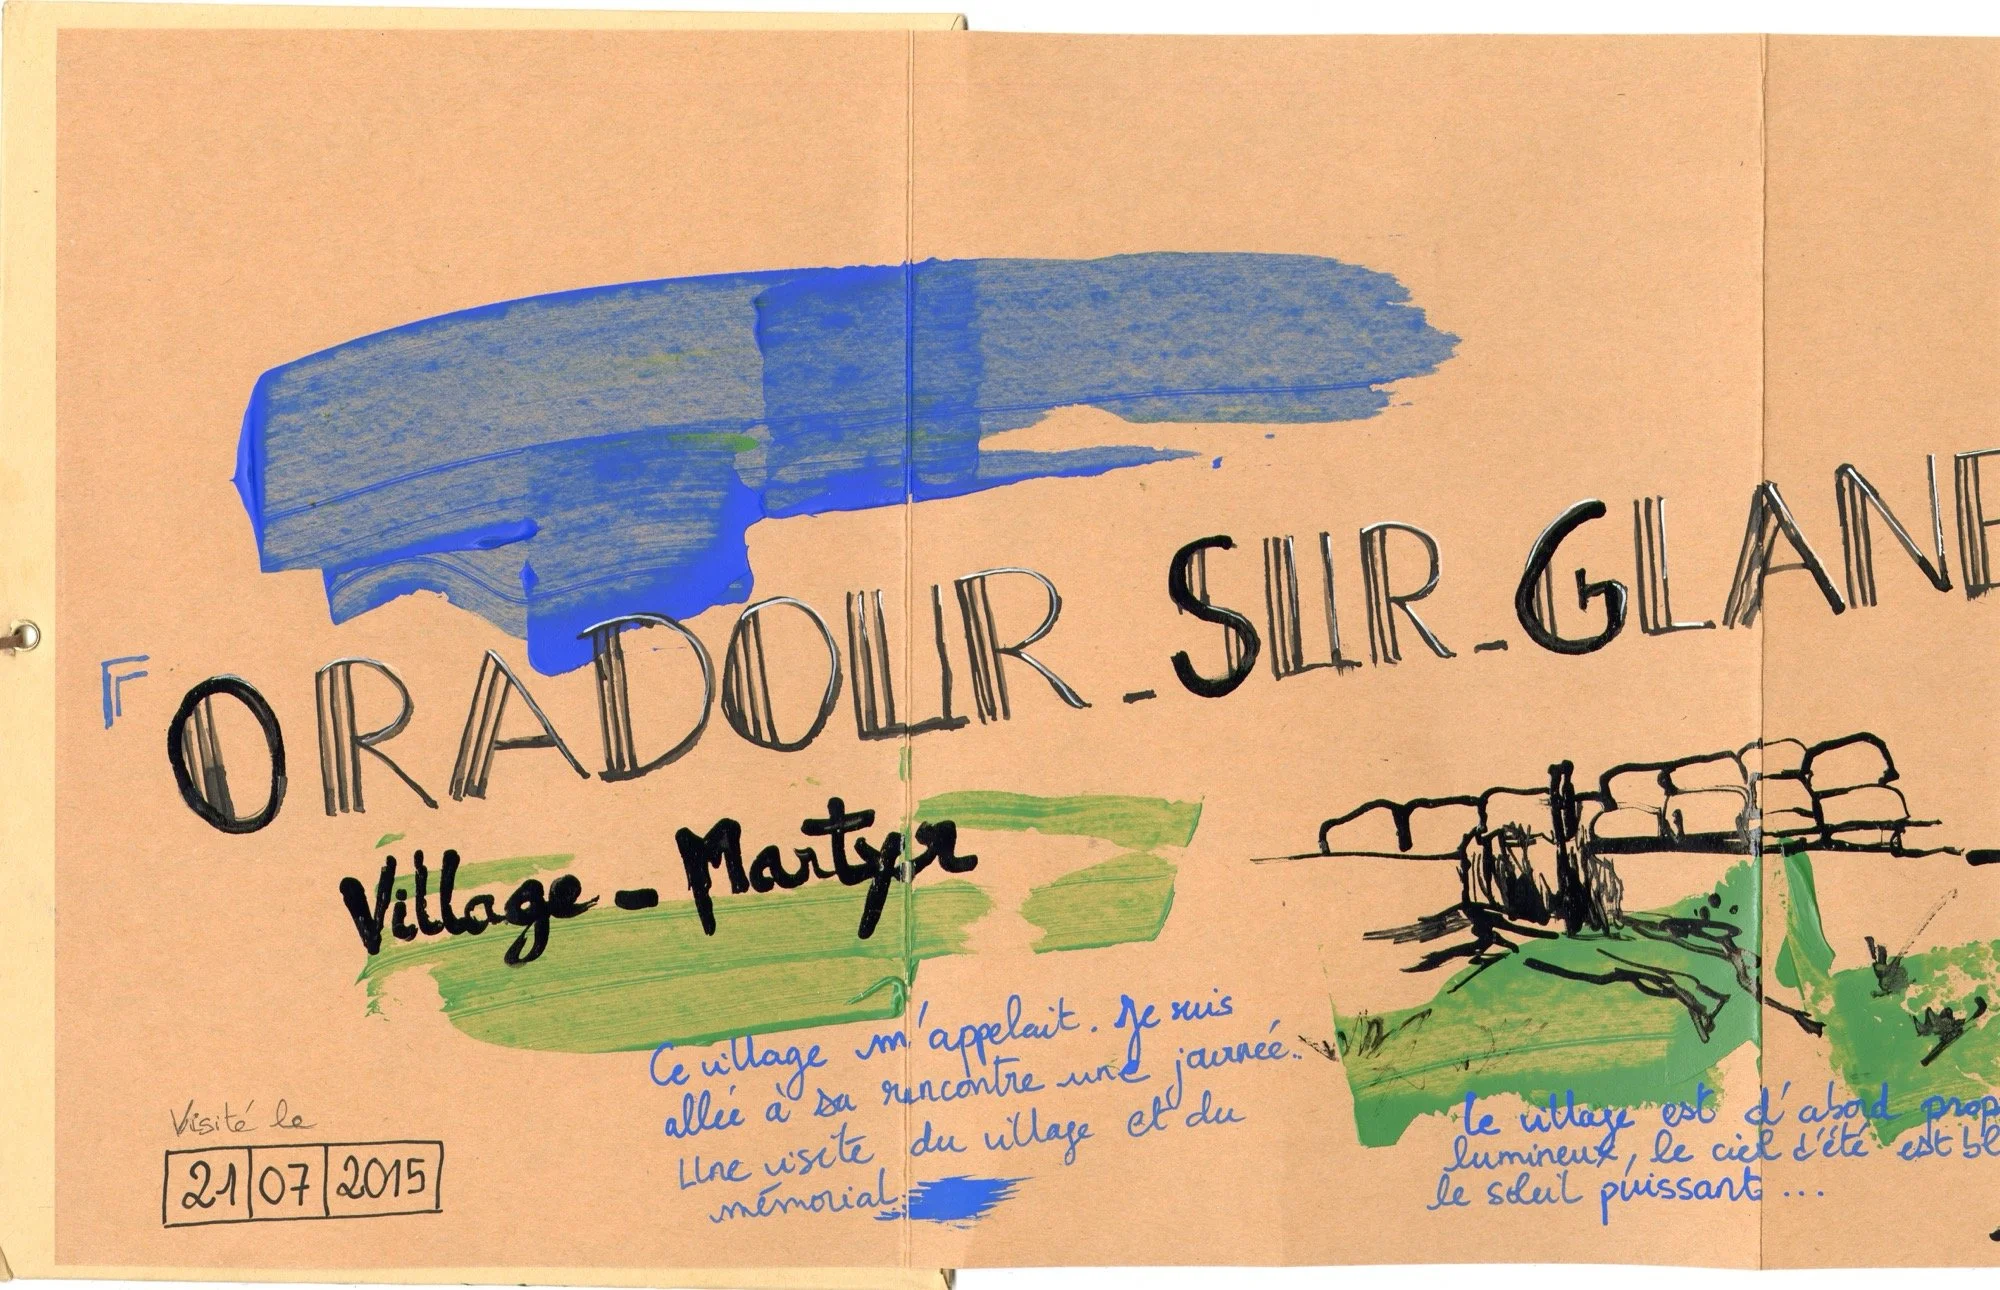 F
ORADOUR_SUR_GLANE
Village - Martyr
Ce village m'appelait. Je suis
allée à sa rencontre une journée..
Une visite du village et du
mémorial.
Visité le
21 07 2015
Le village est d'abord prop
lumineux, le ciel d'été est bl
le soleil puissant ...